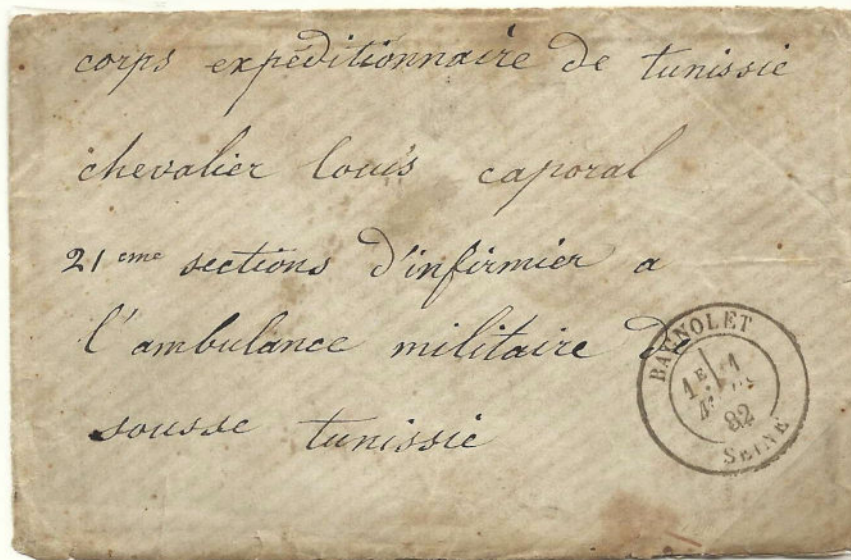 corps expéditionnaire de tunissie
chevalier louis caporal
21 eme sections d'infirmier a
l'ambulance militaire de
sousse tunissie
BAGNOLET
1E
82
SEINE